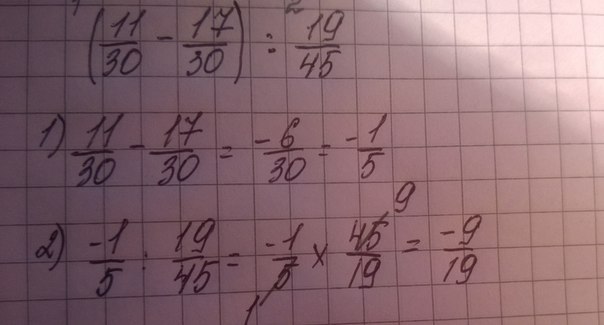 (11/30 - 17/30) : 19/45
1) 11/30 - 17/30 = -6/30 = -1/5
2) -1/5 : 19/45 = -1/5 × 45/19 = -9/19
9
1